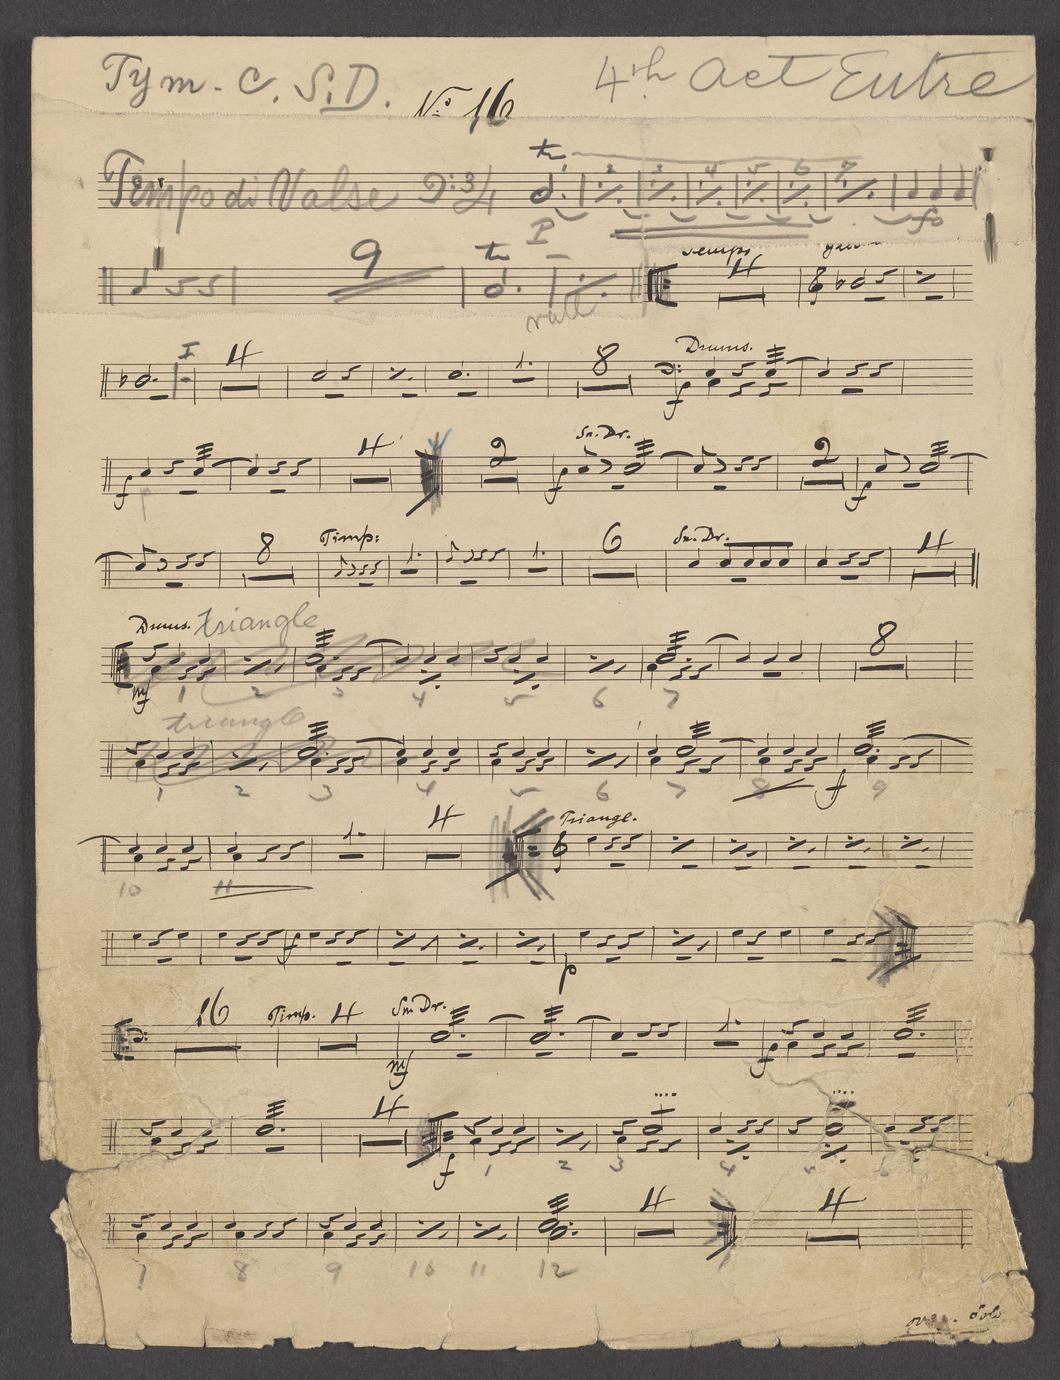 Tym. C. S. D. 4th Act Entre
No 16
Tempo di Valse 3/4 tr 2 3 4 5 6 7
P fo
9 tr 4
rall
I 4 8 Drums.
f
4 2 Sn. Dr. 2
f f f
8 Timp: 6 Sn. Dr. 4
Drums. triangle 8
mf 1 2 3 4 5 6 7
triangle
1 2 3 4 5 6 7 8 f 9
4 Triangl.
10 11
f p
16 Timp. 4 Sn. Dr.
mf f
4
f 1 2 3 4 5 6
4 4
7 8 9 10 11 12
Solo